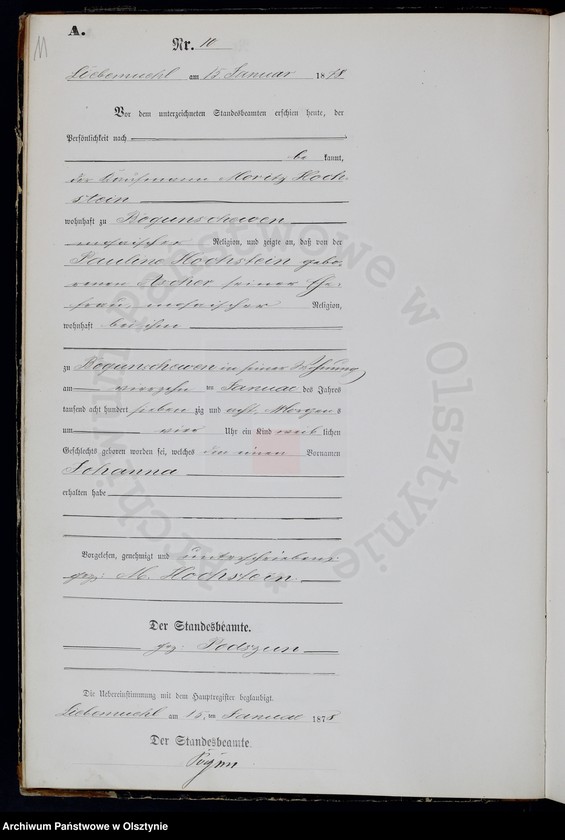 11
A.
Nr. 10
Liebemuehl am 15 Januar 1878
Vor dem unterzeichneten Standesbeamten erschien heute, der
Persönlichkeit nach
be kannt,
der Kaufmann Moritz Hoch-
stein
wohnhaft zu Bogunschewen
mosaischer Religion, und zeigte an, daß von der
Pauline Hochstein gebo-
renen Ascher seiner Ehe-
frau, mosaischer Religion,
wohnhaft bei ihm
zu Bogunschewen in seiner Wohnung
am vierzehn ten Januar des Jahres
tausend acht hundert sieben zig und acht, Morgens
um vier Uhr ein Kind weib lichen
Geschlechts geboren worden sei, welches den einen Vornamen
Johanna
erhalten habe
Vorgelesen, genehmigt und unterschrieben:
gez: M. Hochstein
Der Standesbeamte.
gez: Podszun
Die Uebereinstimmung mit dem Hauptregister beglaubigt.
Liebemuehl am 15. ten Januar 1878
Der Standesbeamte
Archiwum Państwowe w Olsztynie
Archiwum Państwowe w Olsztynie